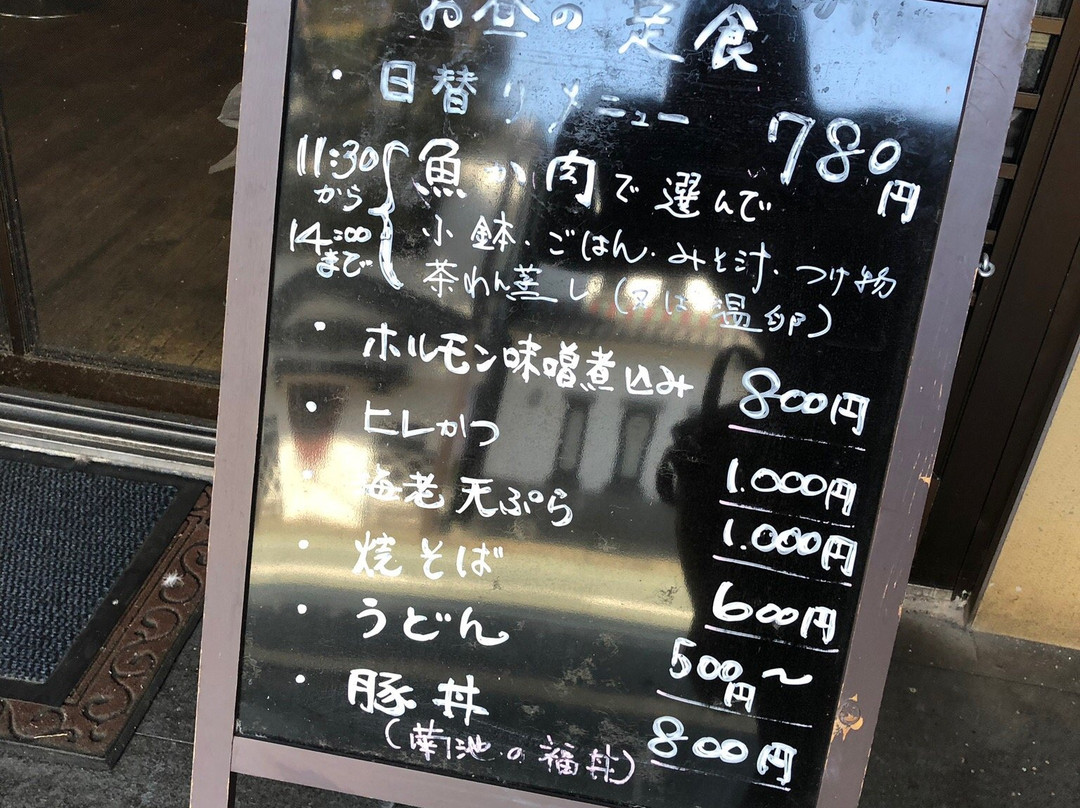 お昼の定食
・日替りメニュー 780円
11:30から14:00まで
魚か肉で選んで
小鉢・ごはん・みそ汁・つけ物
茶わん蒸し(又は温卵)
・ホルモン味噌煮込み 800円
・ヒレかつ 1.000円
・海老天ぷら 1.000円
・焼そば 600円
・うどん 500円～
・豚丼 800円
(菊池の福丼)